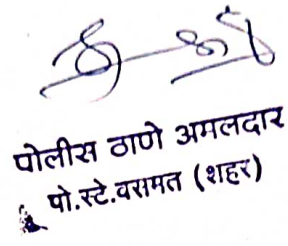 पोलीस ठाणे अमलदार
पो.स्टे.वसमत (शहर)